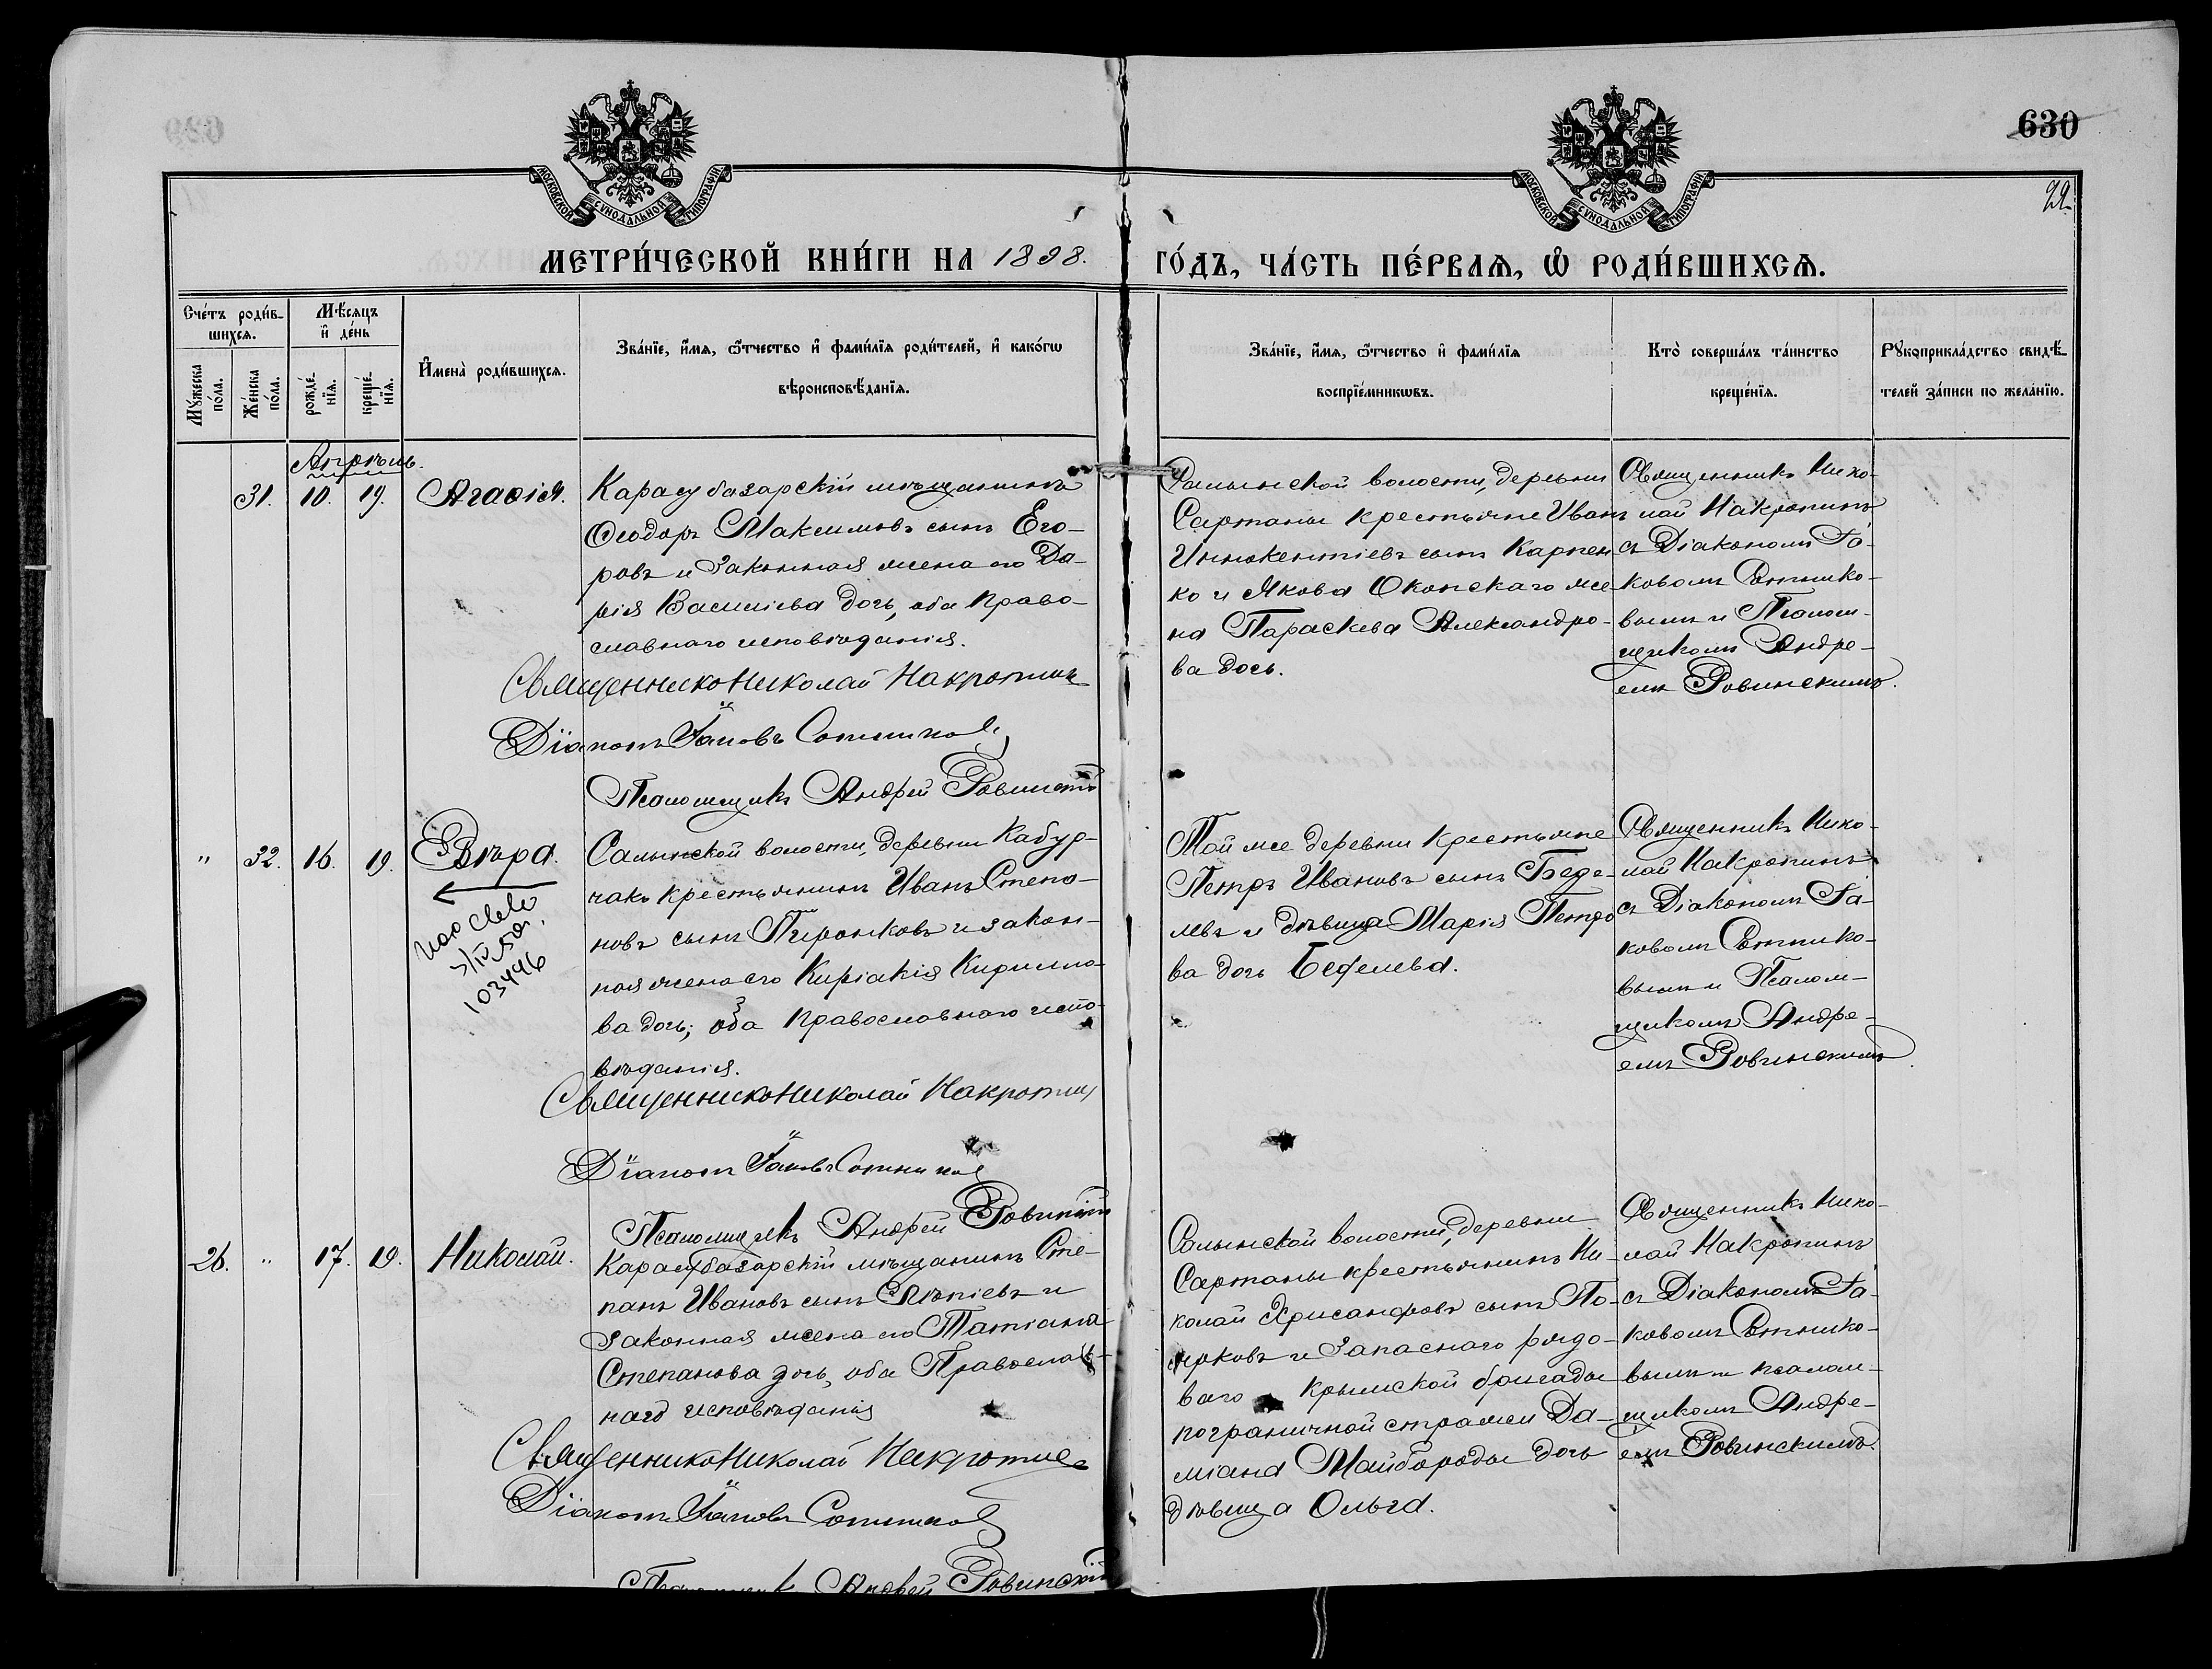 630
22.
МОСКОВСКОЙ СѴНОДАЛЬНОЙ ТИПОГРАФІИ
МОСКОВСКОЙ СѴНОДАЛЬНОЙ ТИПОГРАФІИ
МЕТРИ́ЧЕСКОЙ КНИ́ГИ НА 1898. ГО́ДЪ, ЧА́СТЬ ПЕ́РВАѦ, Ѽ РОДИ́ВШИХСѦ.
Сче́тъ роди́вшихсѧ.
Мꙋ́жеска по́ла.
Же́нска по́ла.
Мѣ́сѧцъ и҆ де́нь
рожде́нїѧ.
креще́нїѧ.
И҆мена̀ роди́вшихсѧ.
Зва́нїе, и҆́мѧ, ѻ҆́тчество и҆ фами́лїѧ роди́телей, и҆ како́гѡ
вѣроисповѣ́данїѧ.
Зва́нїе, и҆́мѧ, ѻ҆́тчество и҆ фами́лїѧ
воспрїе́мникѡвъ.
Кто̀ соверша́лъ та́инство
креще́нїѧ.
Рꙋкоприкла́дство свидѣ́-
телей за́писи по жела́нїю.
Апрѣль.
31. 10. 19. Агаѳія.
Карасубазарскій мѣщанинъ
Ѳеодоръ Максимовъ сынъ Его-
ровъ и законная жена его Да-
рія Василіева дочь, оба Право-
славнаго исповѣданія.
Священникъ Николай Накропинъ
Діаконъ Іаковъ Сотников
Псаломщикъ Андрей Ровинскій
Салынской волости, деревни
Сартаны крестьяне Иванъ
Иннокентіевъ сынъ Карпен
ко и Якова Оконскаго же
на Параскева Александро-
ва дочь.
Священникъ Нико-
лай Накропинъ
съ Діакономъ Іа-
ковомъ Сотнико-
вымъ и Псалом-
щикомъ Андре-
емъ Ровинскимъ.
" 32. 16. 19. Вѣра.
103496
Салынской волости, деревни Кабур-
чакъ крестьянинъ Иванъ Степа-
новъ сынъ Пиронковъ и закон-
ная жена его Киріакія Кирилло-
ва дочь; оба Православнаго испо-
вѣданія.
Священникъ Николай Накропин
Діаконъ Іаковъ Сотников
Псаломщикъ Андрей Ровинскій
Той же деревни крестьяне
Петръ Ивановъ сынъ Беде-
левъ и дѣвица Марія Петро
ва дочь Беделева.
Священникъ Нико-
лай Накропинъ
съ Діакономъ Іа-
ковомъ Сотнико-
вымъ и Псалом-
щикомъ Андре-
емъ Ровинскимъ.
26. " 17. 19. Николай.
Карасубазарскій мѣщанинъ Сте-
панъ Ивановъ сынъ
законная жена его Татіана
Степанова дочь, оба Православ-
наго исповѣданія
Священникъ Николай Накропин
Діаконъ Іаковъ Сотников
Псаломщикъ Андрей Ровинскій
Салынской волости, деревни
Сартаны крестьянинъ Ни-
колай Хрисанфовъ сынъ
и запаснаго рядо-
ваго Крымской бригады
пограничной стражи Да-
міана Майбороды дочь
дѣвица Ольга.
Священникъ Нико-
лай Накропинъ
съ Діакономъ Іа-
ковомъ Сотнико-
вымъ и псалом-
щикомъ Андре-
емъ Ровинскимъ.